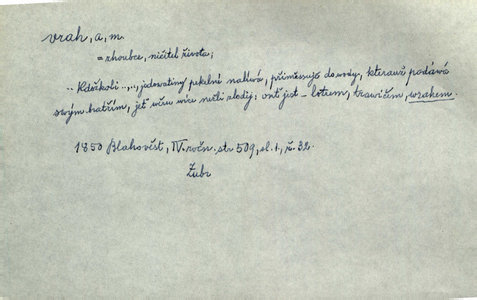 vrah, a, m.
= zhoubce, ničitel života;
.. Kdožkoli ..,.., jedowatiny pekelné nalívá, přiměšuje do wody, kterauž podává
swým bratřím, jeť více než zloděj; onť jest – lotrem, trawičem, wrahem.
1850 Blahověst, IV. ročn. str 509, sl. 1, ř. 32.
Zubr